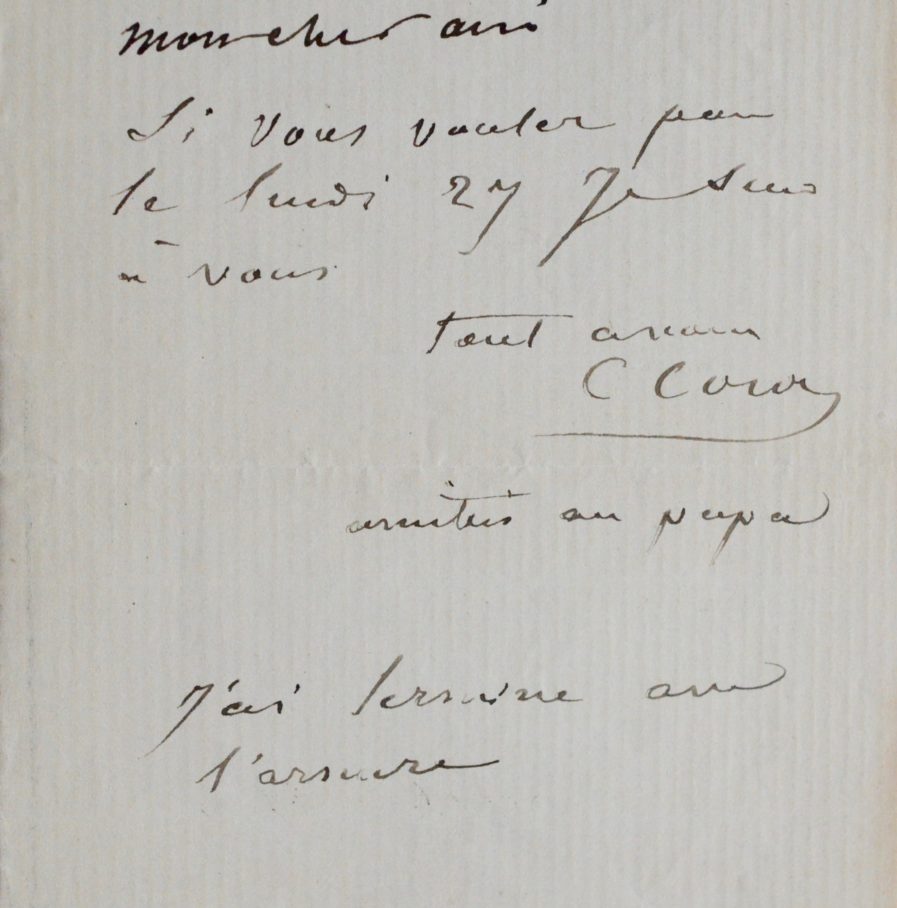 Mon cher ami
Si vous voulez pour
le lundi 27 Je suis
à vous
tout
C Corot
amitiés au papa
J'ai terminé
l'armure